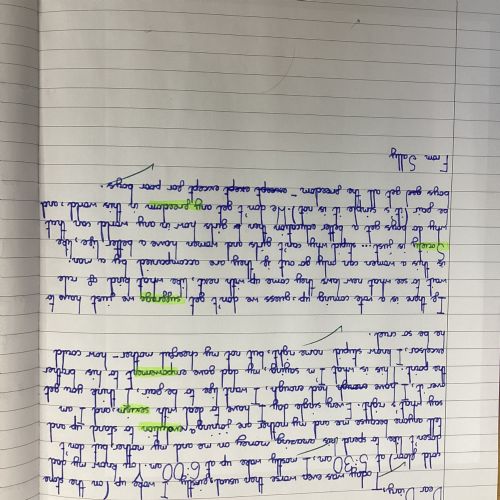 Dear Diary,
Today was even worse than usual, recently I woke up (on the stone
cold floor) at 5:30 am. I mostly wake up at 6:00 am. You know my dad
doesn't like to spend his amazing money on me and my mother, but don't
tell anyone because me and my mother are joining a revolution to stand up and
say what's right. Every single day I have to deal with sexism and I am
over it. I have enough had enough, I want life to be fair. I think you get
the point. This is what I'm saying, my dad gave to his brother
I know stupid name right, but not my cheerful mother - how could
he be so cruel.
If there is a vote coming up, guess.. we don't get suffrage we just have to
wait to see what new laws they come up with next, like what kind of rule
is this a women can only go out if they are accompanied by a man.
Society is just.. stupid why can't girls and women have a better life, like,
why do boys get a better education than girls how in any world can that
be fair it's simple it is not! We don't get any freedom in this world, and
boys get all the freedom - except except for poor boys.
From Sally